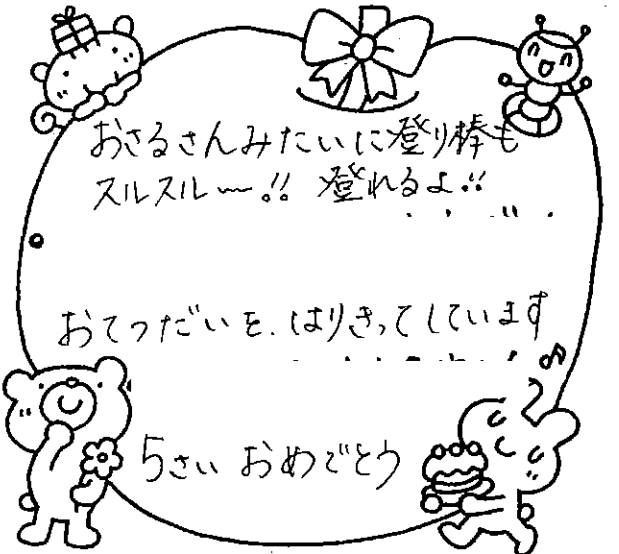 おさるさんみたいに登り棒も
スルスル〜!! 登れるよ!!
おてつだいを、はりきってしています
5さい おめでとう